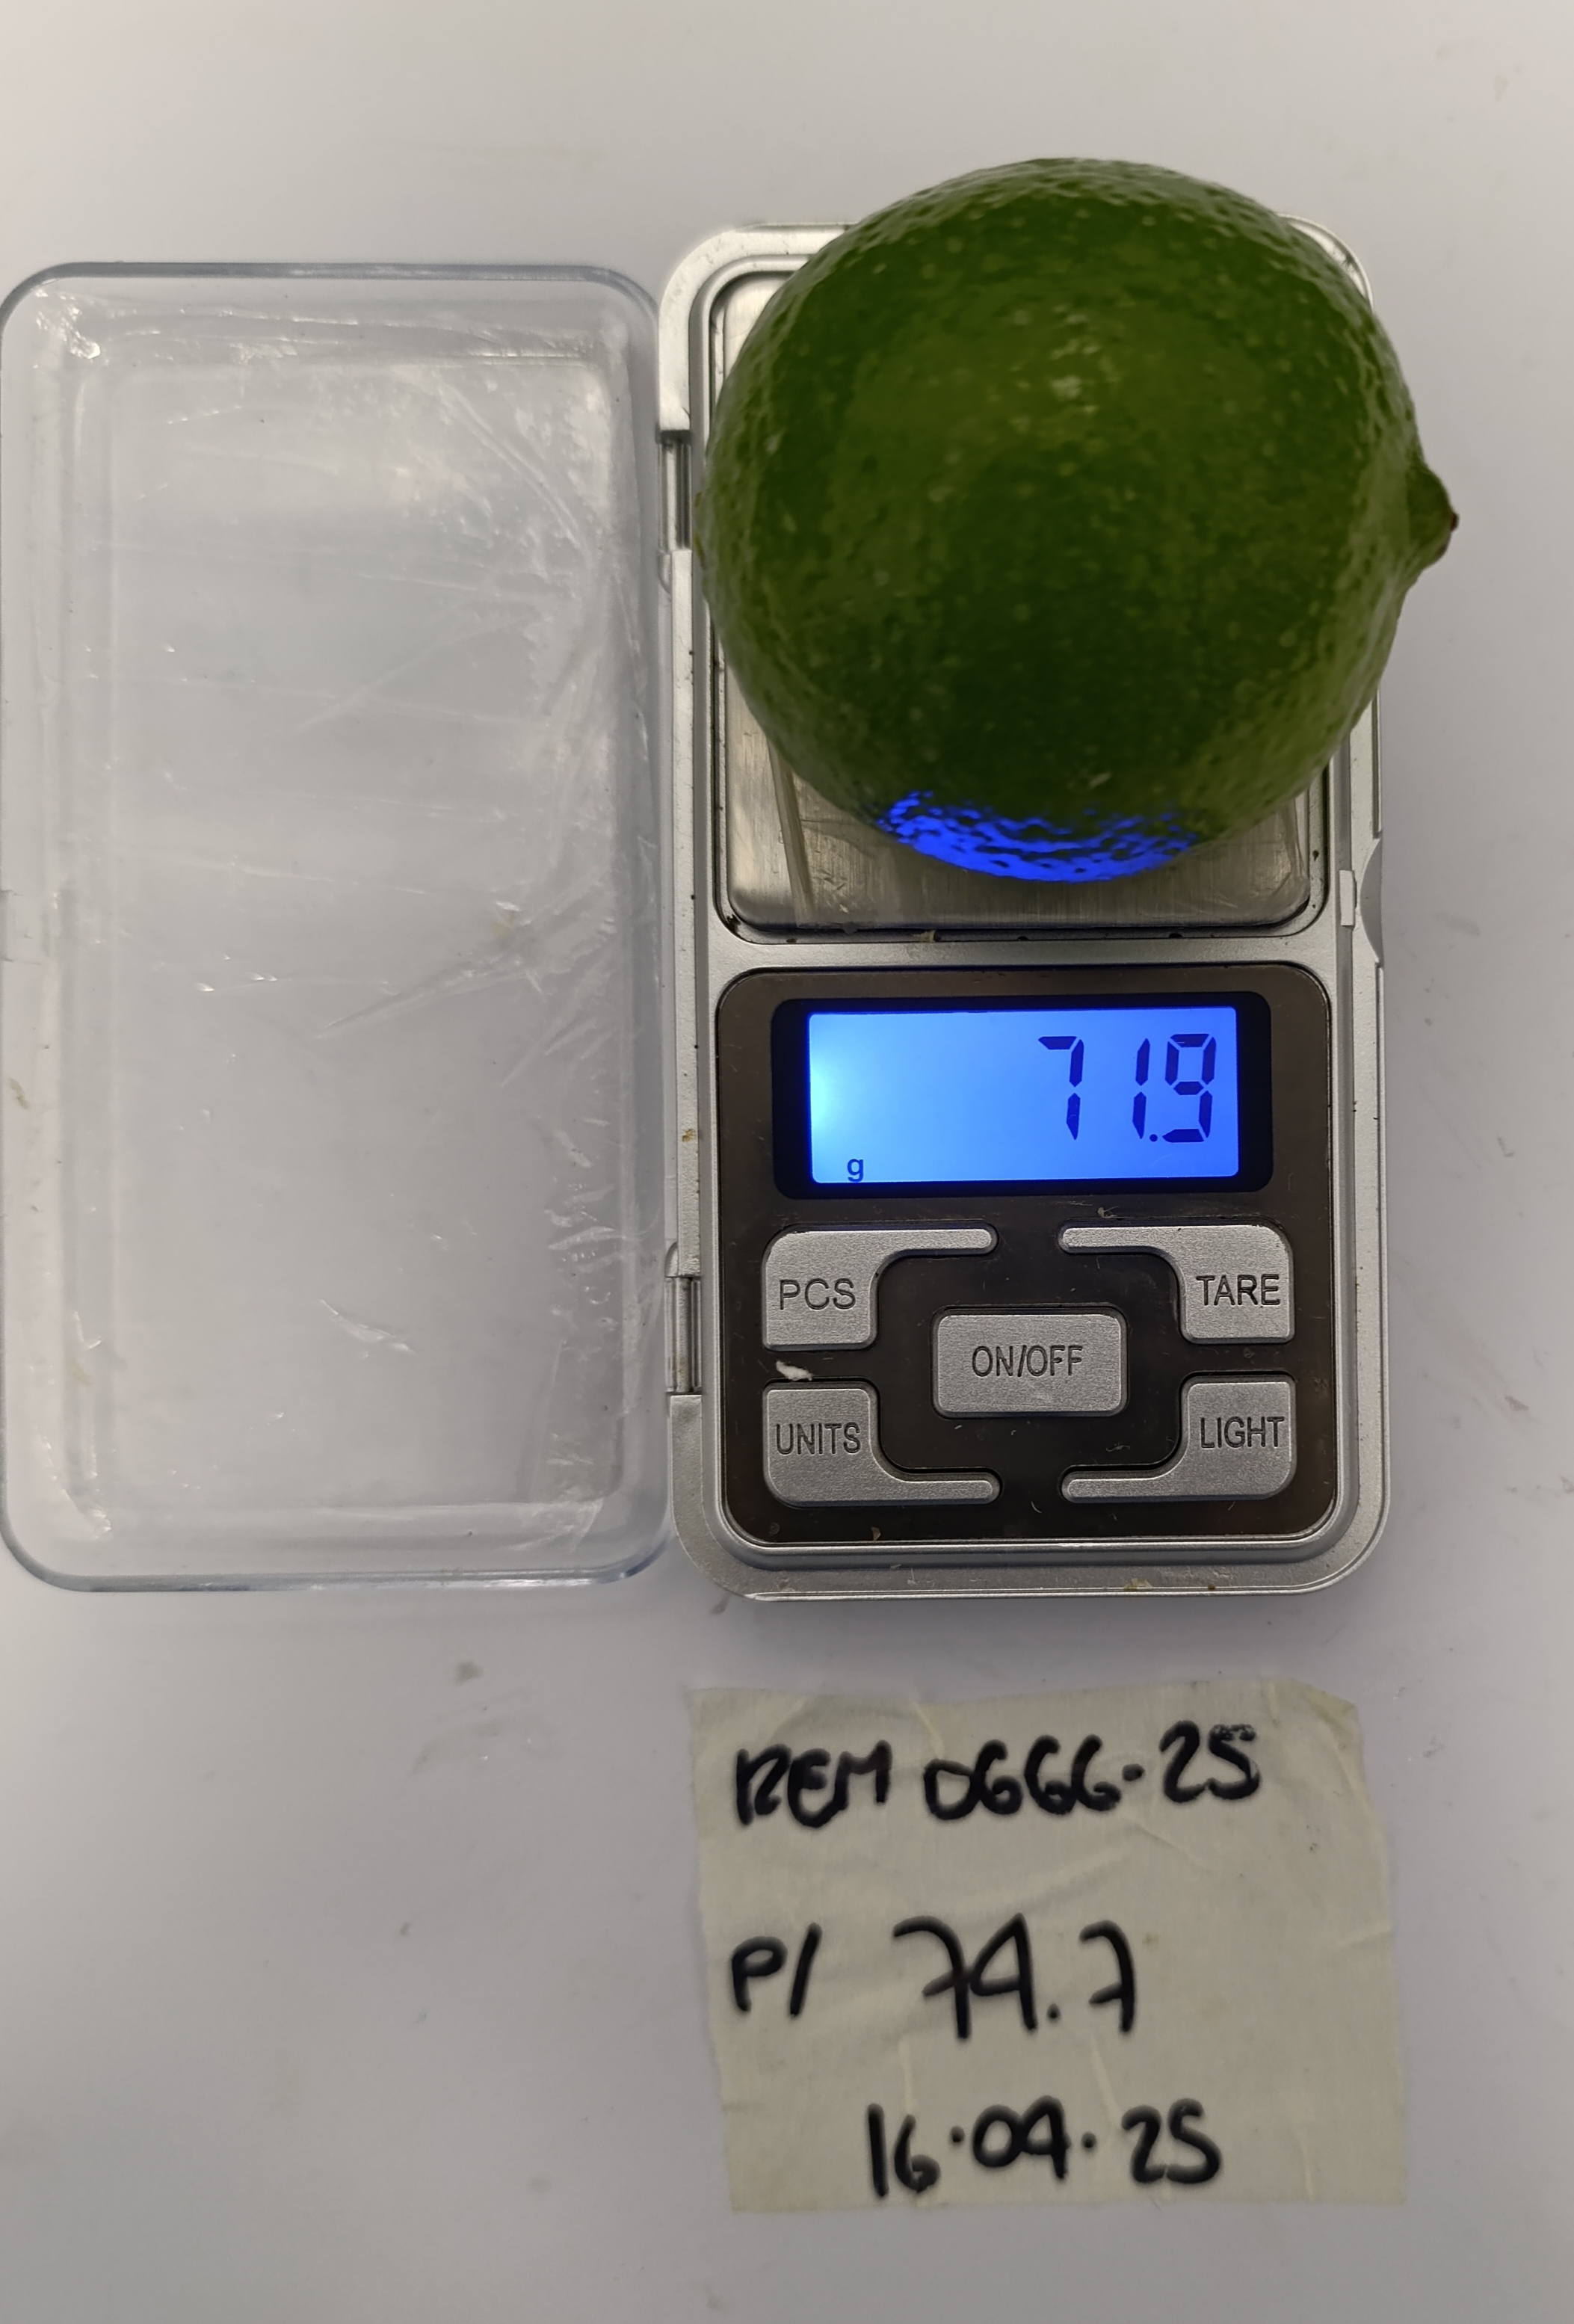 71.9
g
PCS
TARE
ON/OFF
UNITS
LIGHT
REM 0666-25
P/ 74.7
16.04.25